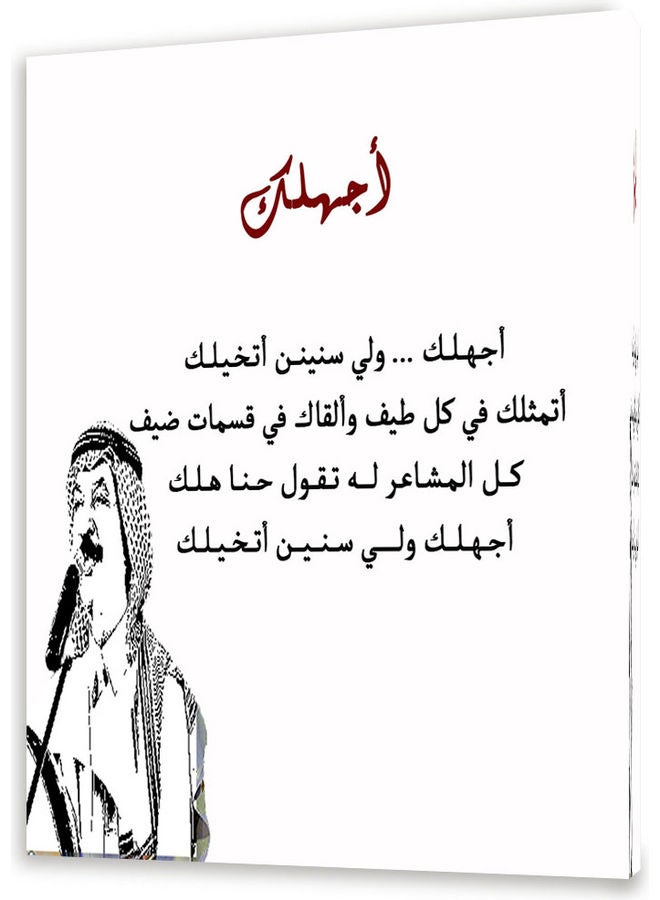 أجهلك
أجهلك ... ولي سنينن أتخيلك
أتمثلك في كل طيف وألقاك في قسمات ضيف
كل المشاعر له تقول حنا هلك
أجهلك ولي سنين أتخيلك